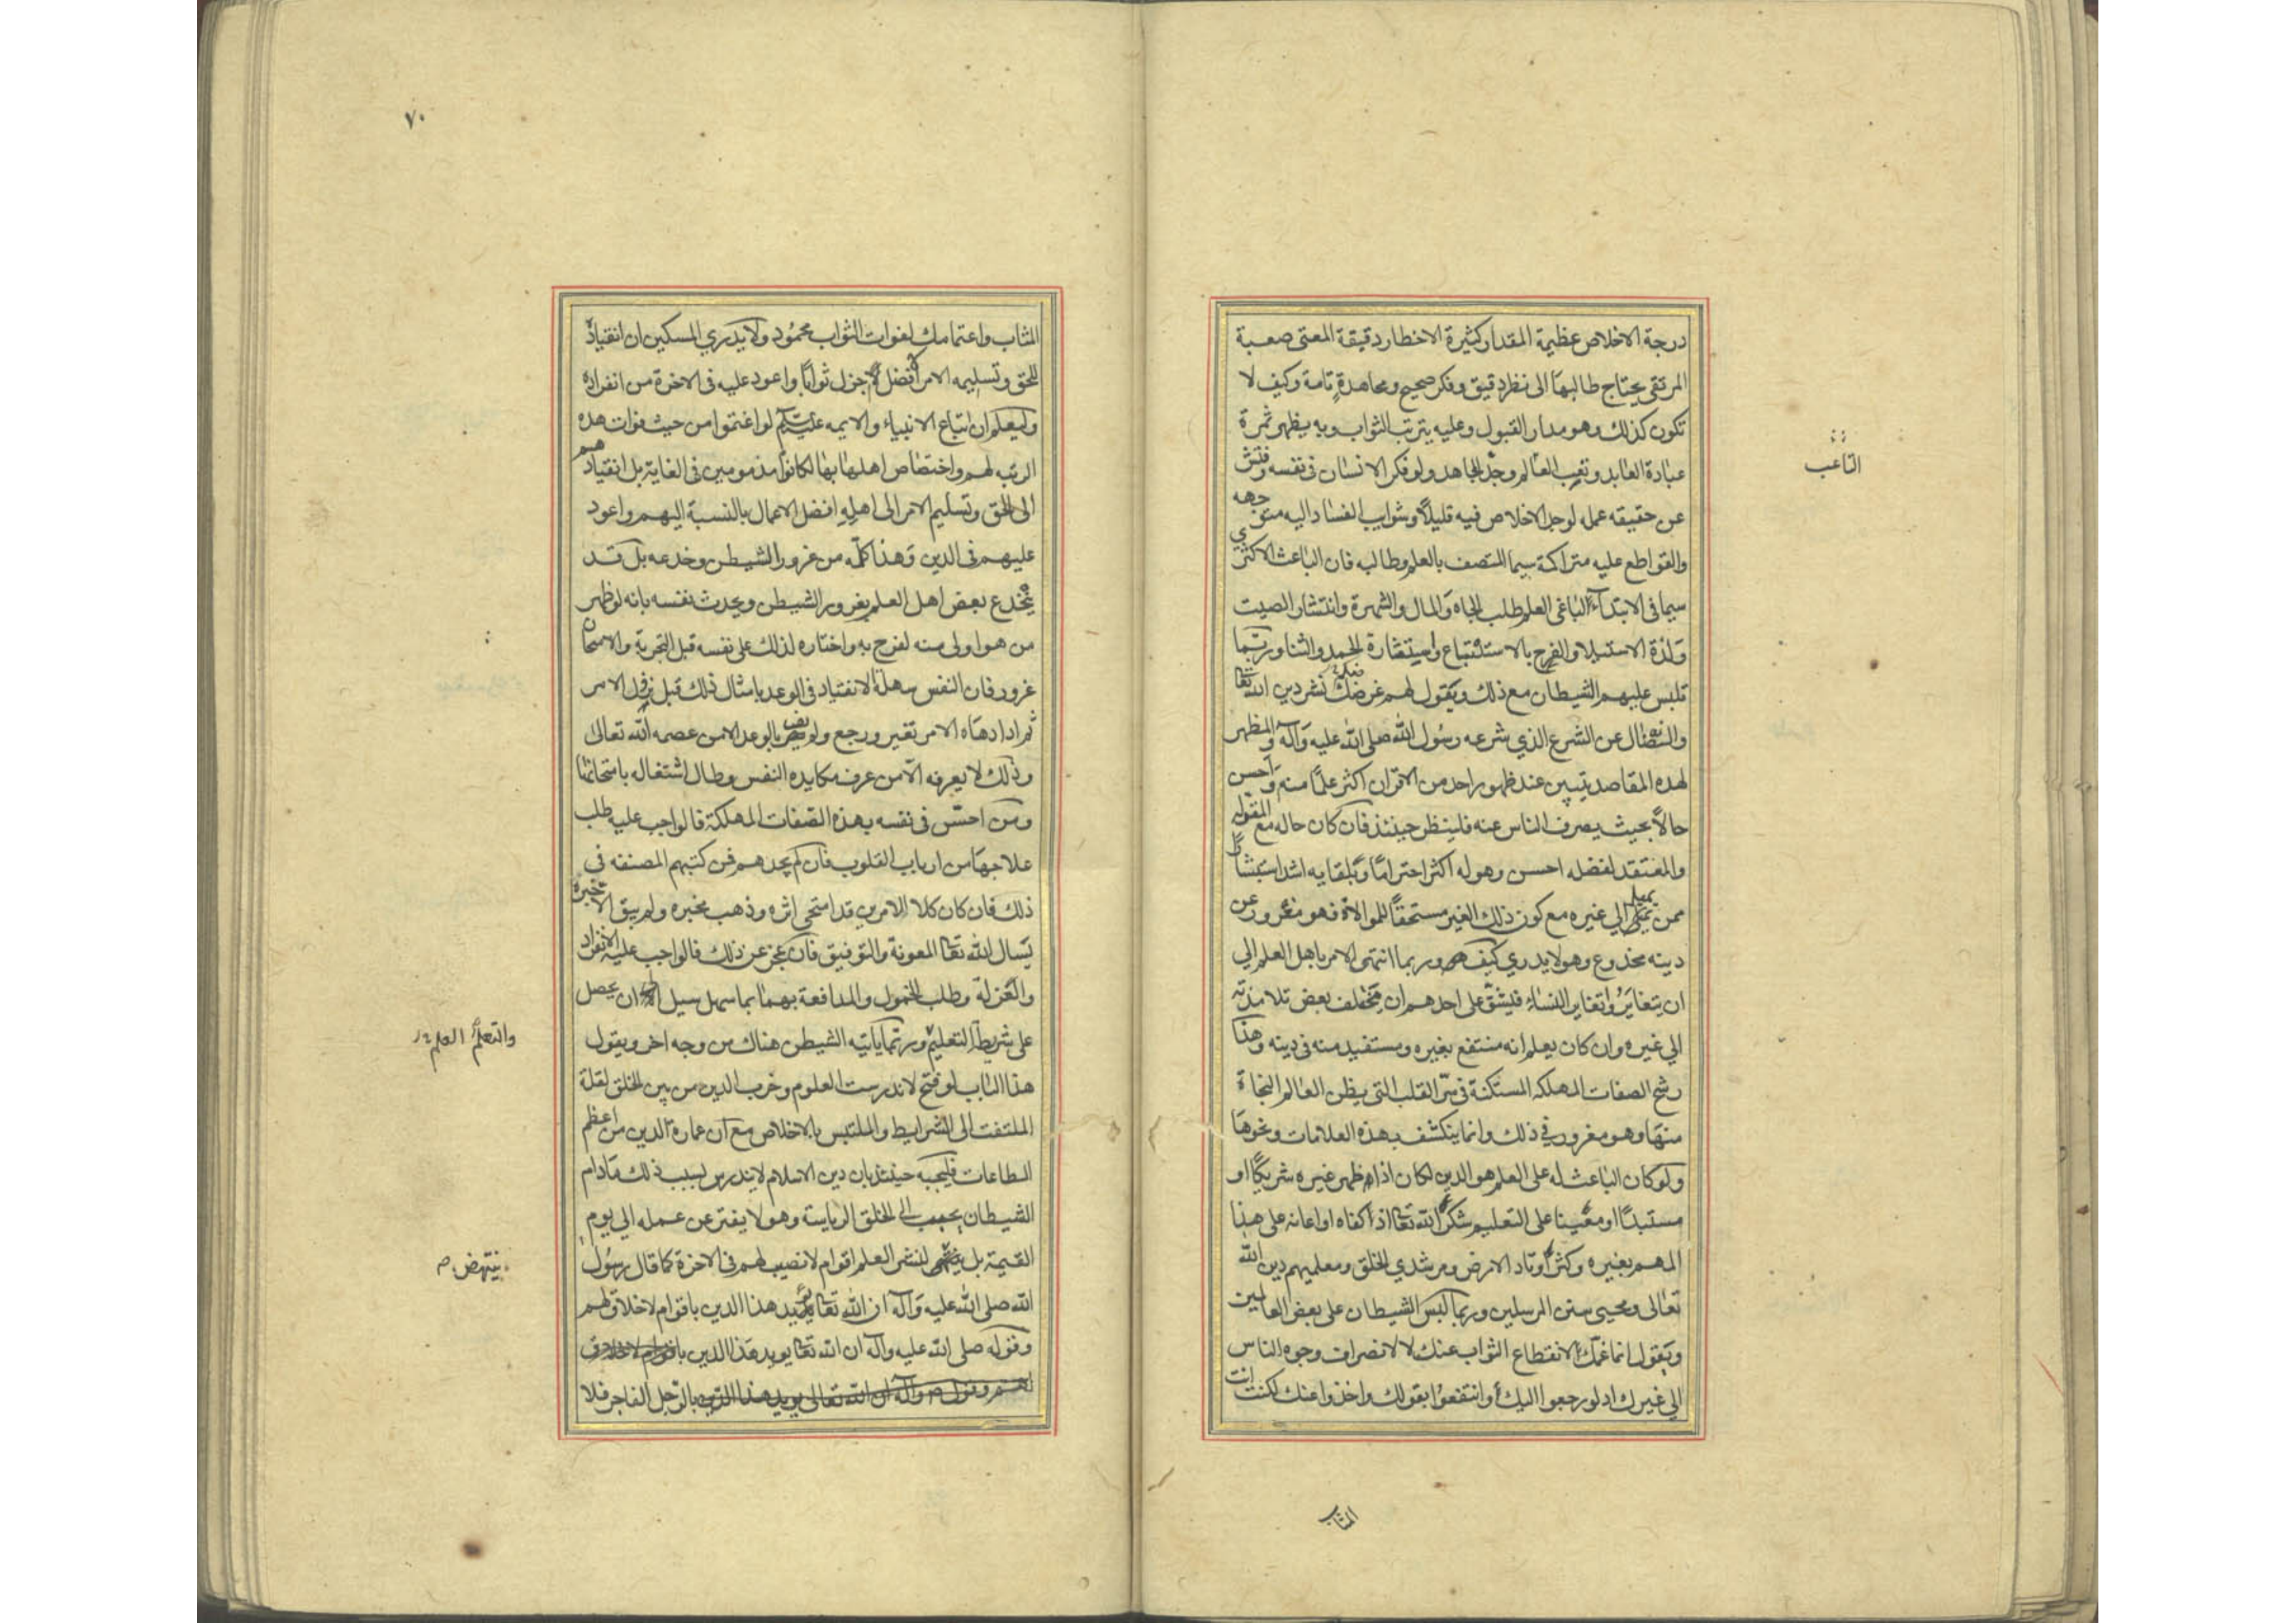 درجة الاخلاص عظيمة المقدار كثيرة الاخطار دقيقة المعنى صعبة
المرتقى يحتاج طالبها الى نظر دقيق وفكر صحيح ومجاهدة تامة وكيف لا
تكون كذلك وهو مدار القبول وعليه يترتب الثواب وبه يظهر ثمرة
عبادة العابد وتعب العالم وجد المجاهد ولو فكر الانسان فى نفسه وفتش
عن حقيقه عمله لوجد الاخلاص فيه قليلا وشوايب الفساد اليه متوجهه
والقواطع عليه متراكمة سيما المتصف بالعلم وطالبه فان الباعث الاكثرى
سيما فى الابتداء لباغى العلم طلب الجاه والمال والشهرة وانتشار الصيت
ولذة الاستيلا والفرح بالاستتباع واستثارة الحمد والثنا وربما
تلبس عليهم الشيطان مع ذلك ويقول لهم غرضكم نشر دين الله تعا
والنضال عن الشرع الذي شرعه رسول الله صلى الله عليه وآله والمظهر
لهذه المقاصد يتبين عند ظهور احد من الاقران اكثر علما منه واحسن
حالا بحيث يصرف الناس عنه فلينظر حينئذ فان كان حاله مع الموقر له
والمعتقد لفضله احسن وهو له اكثر احتراما وبلقايه اشد استبشارا
ممن يميل الى غيره مع كون ذلك الغير مستحقا للموالاة فهو مغرور عن
دينه مخدوع وهو لا يدري كيف وربما انتهى الامر باهل العلم الي
ان يتغايروا تغاير النساء فيشق على احدهم ان يختلف بعض تلامذته
الي غيره وان كان يعلم انه منتفع بغيره ومستفيد منه فى دينه وهذا
رشح الصفات المهلكه المستكنة فى سر القلب التى يظن العالم النجاة
منها وهو مغرور في ذلك وانما ينكشف بهذه العلامات ونحوها
ولو كان الباعث له على العلم هو الدين لكان اذا ظهر غيره شريكا او
مستبدا او معينا على التعليم شكر الله تعا اذ اكفاه او اعانه على هذا
المهم بغيره وكثر اوتاد الارض ومرشدي الخلق ومعلميهم دين الله
تعالى ومحيى سنن المرسلين وربما لبس الشيطان على بعض العالمين
ويقول انما غمك لانقطاع الثواب عنك لا لانصراف وجوه الناس
الي غيرك اذ لو رجعوا اليك وانتفعوا بقولك واخذوا عنك لكنت انت
المثاب
التاعب
٧٠
المثاب واغتمامك لفوات الثواب محمود ولا يدري المسكين ان انقياده
للحق وتسليمه الامر افضل واجزل ثوابا واعود عليه فى الاخرة من انفراده
وليعلم ان اتباع الانبياء والايمه عليهم السلم لو اغتموا من حيث فوات هذه
الرتبه لهم واختصاص اهلها بها لكانوا مذمومين فى الغاية بل انقيادهم
الى الحق وتسليم الامر الى اهله افضل الاعمال بالنسبة اليهم واعود
عليهم فى الدين وهذا كله من غرور الشيطن وخدعه بل قد
ينخدع بعض اهل العلم بغرور الشيطن ويحدث نفسه بانه لو ظهر
من هو اولى منه لفرح به واختاره لذلك على نفسه قبل التجربة والامتحان
غرور فان النفس سهلة الانقياد فى الوعد بامثال ذلك قبل نزول الامر
ثم اذا دهاه الامر تغير ورجع ولم يف بالوعد الا من عصمه الله تعالى
وذلك لا يعرفه الا من عرف مكايده النفس وطال اشتغاله بامتحانها
ومن احس فى نفسه بهذه الصفات المهلكة فالواجب عليه طلب
علاجها من ارباب القلوب فان لم يجدهم فمن كتبهم المصنفه فى
ذلك فان كان كلا الامرين قد امتحى اثره وذهب مخبره ولم يبق الا خبره
يسال الله تعا المعونة والتوفيق فان عجز عن ذلك فالواجب عليه الانفراد
والعزلة وطلب الخمول والمدافعة بهما بما سهل سبيل الا ان يحصل
على شريطة التعليم وربما ياتيه الشيطن هناك من وجه اخر ويقول
هذا الباب لو فتح لاندرست العلوم وخرب الدين من بين الخلق لقلة
الملتفت الى الشرايط والملتبس بالاخلاص مع ان عمارة الدين من اعظم
الطاعات فليجبه حينئذ بان دين الاسلام لا يندرس بسبب ذلك مادام
الشيطان يحبب الى الخلق الرياسة وهو لا يفتر عن عمله الي يوم
القيمة بل لنشر العلم اقوام لا نصيب لهم فى الاخرة كما قال رسول
الله صلى الله عليه وآله ان الله تعا يؤيد هذا الدين باقوام لا خلاق لهم
وقوله صلى الله عليه وآله ان الله تعا يويد هذا الدين باقوام لا خلاق
لهم وقوله ص وآله ان الله تعالى يويد هذا الدين بالرجل الفاجر فلا
والتعلم العلم
ينتهض ص